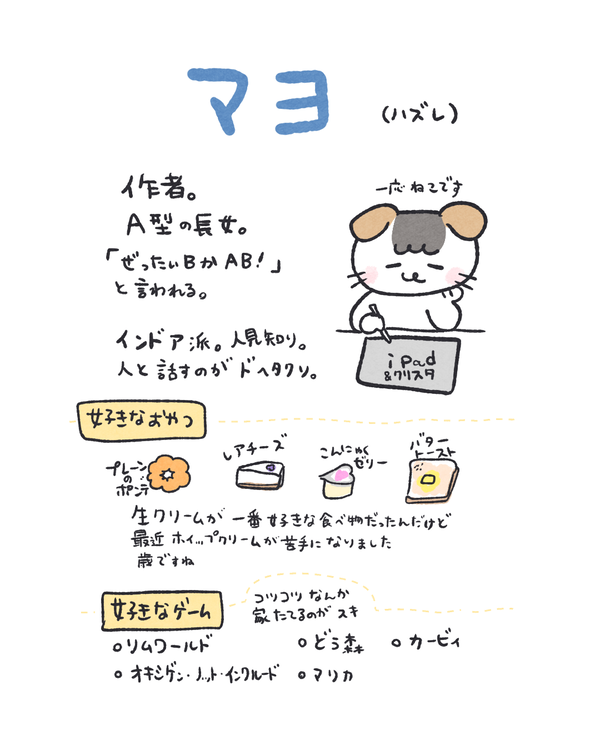 マヨ
(ハズレ)
作者。
A型の長女。
「ぜったいBかAB!」
と言われる。
一応ねこです
インドア派。人見知り。
人と話すのがドヘタクソ。
iPad
&クリスタ
好きなおやつ
プレーン
の
ポンデ
レアチーズ
こんにゃく
ゼリー
バター
トースト
生クリームが一番好きな食べ物だったんだけど
最近ホイップクリームが苦手になりました
歳ですね
好きなゲーム
コツコツなんか
家たてるのがスキ
○リムワールド
○どう森
○カービィ
○オキシゲン・ノット・インクルード
○マリカ